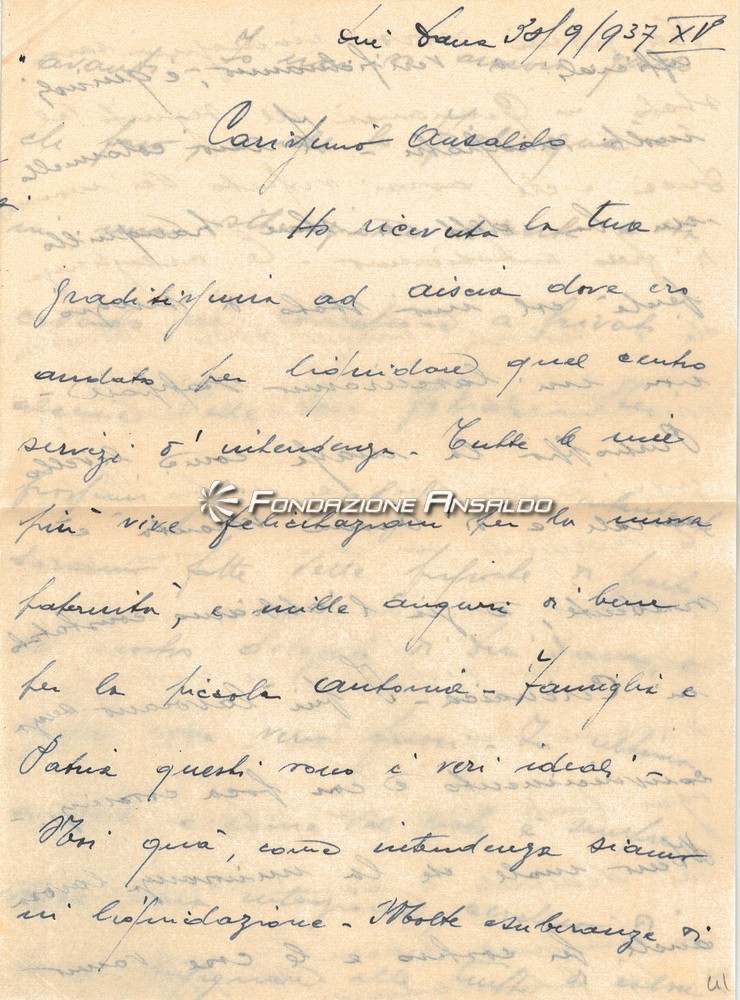 Dire Daua 30/9/937 XV°
Carissimo Ansaldo
Ho ricevuta la tua
graditissima ad aiscia dove ero
andato per liquidare quel centro
servizi d'intendenza - Tutte le mie
FONDAZIONE ANSALDO
più vive felicitazioni per la nuova
paternità, e mille auguri di bene
per la piccola Antonia - Famiglia e
Patria questi sono i veri ideali -
Noi quà, come intendenza siamo
in liquidazione - Molte esuberanze di
41